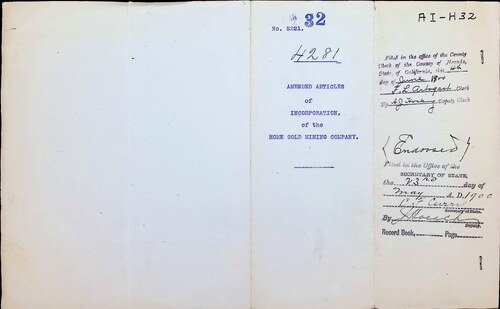 32
No. 5221.
4281
AMENDED ARTICLES
of
INCORPORATION,
of the
HOME GOLD MINING COMPANY.
AI-H32
Filed in the office of the County
Clerk of the County of Nevada,
State of California, this 4th
day of June 1900
F. L. Arbogast Clerk
By Deputy Clerk
(Endorsed)
Filed in the Office of the
SECRETARY OF STATE,
the 23rd day of
May A. D. 1900
C. F. Curry
Secretary of State.
By
Deputy.
Record Book, Page